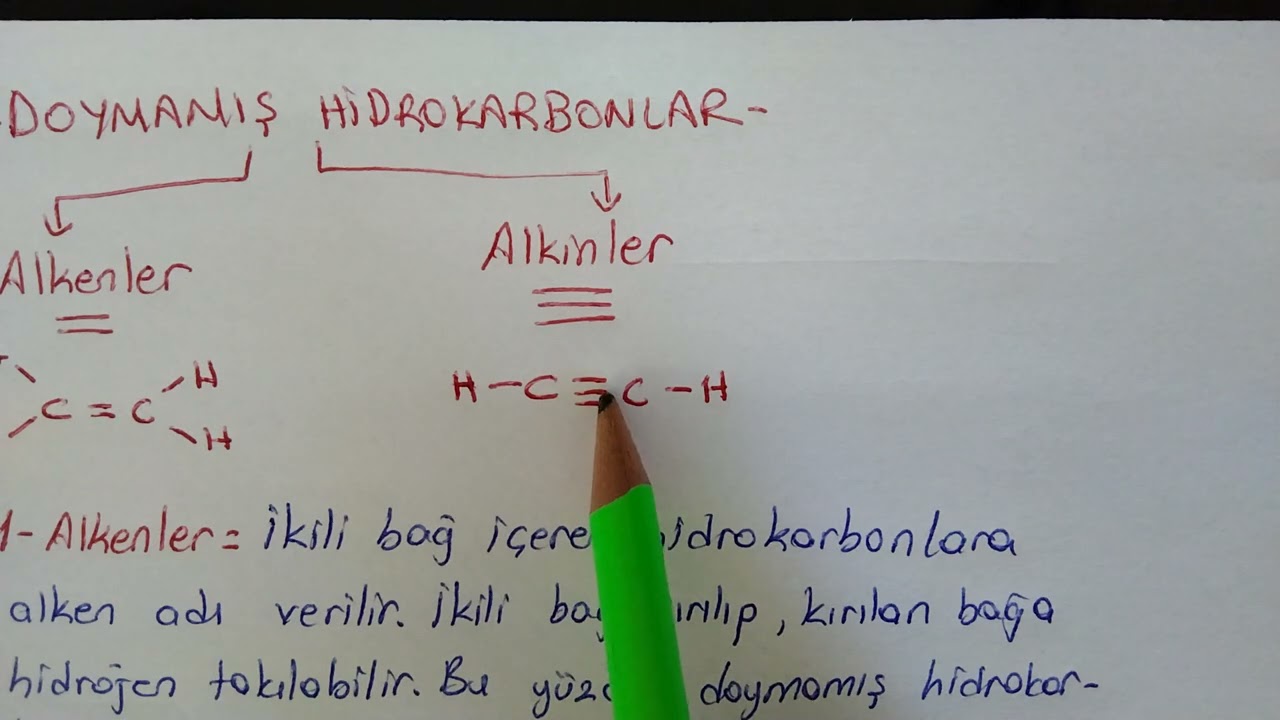 DOYMAMIŞ HİDROKARBONLAR-
Alkenler Alkinler
= ≡
H
C = C H-C≡C-H
H
1- Alkenler = İkili bağ içere hidrokarbonlara
alken adı verilir. İkili bağ kırılıp, kırılan bağa
hidrojen takılabilir. Bu yüzd doymamış hidrokar-